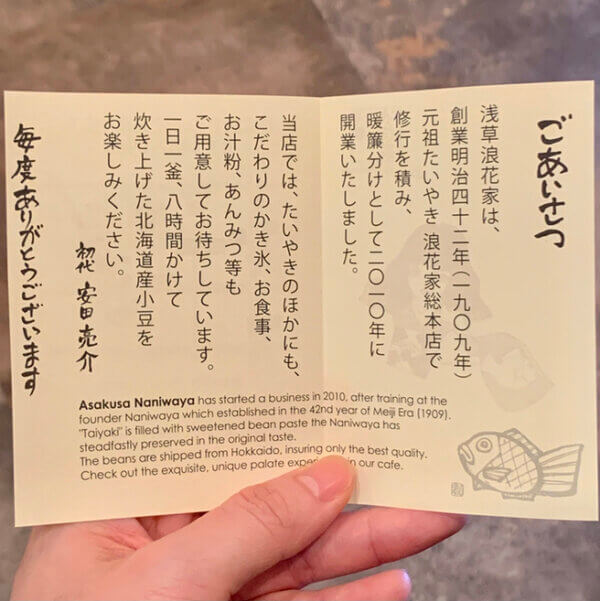 ごあいさつ
浅草浪花家は、
創業明治四十二年(一九〇九年)
元祖たいやき 浪花家総本店で
修行を積み、
暖簾分けとして二〇一〇年に
開業いたしました。
当店では、たいやきのほかにも、
こだわりのかき氷、お食事、
お汁粉、あんみつ等も
ご用意してお待ちしています。
一日一釜、八時間かけて
炊き上げた北海道産小豆を
お楽しみください。
初代 安田亮介
毎度ありがとうございます
Asakusa Naniwaya has started a business in 2010, after training at the
founder Naniwaya which established in the 42nd year of Meiji Era (1909).
"Taiyaki" is filled with sweetened bean paste the Naniwaya has
steadfastly preserved in the original taste.
The beans are shipped from Hokkaido, insuring only the best quality.
Check out the exquisite, unique palate in our cafe.